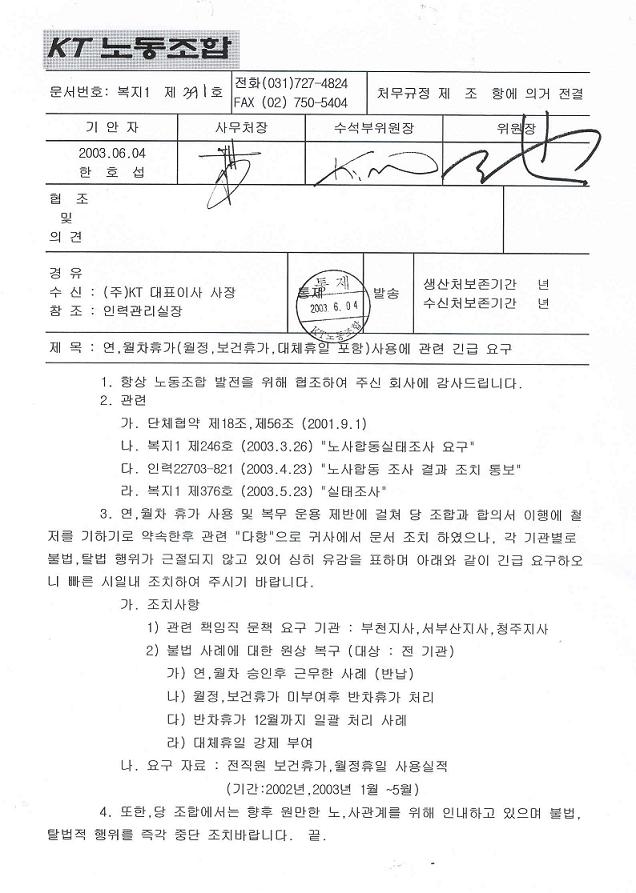 KT 노동조합
문서번호: 복지1 제 391호
전화(031)727-4824
FAX (02) 750-5404
처무규정 제 조 항에 의거 전결
기 안 자 사무처장 수석부위원장 위원장
2003.06.04
한 호 섭
협 조
및
의 견
경 유
수 신 : (주)KT 대표이사 사장
참 조 : 인력관리실장
통제
통 제
2003 6. 0 4
KT노동조합
발송
생산처보존기간 년
수신처보존기간 년
제 목 : 연,월차휴가(월정,보건휴가,대체휴일 포함)사용에 관련 긴급 요구
1. 항상 노동조합 발전을 위해 협조하여 주신 회사에 감사드립니다.
2. 관련
가. 단체협약 제18조,제56조 (2001.9.1)
나. 복지1 제246호 (2003.3.26) "노사합동실태조사 요구"
다. 인력22703-821 (2003.4.23) "노사합동 조사 결과 조치 통보"
라. 복지1 제376호 (2003.5.23) "실태조사"
3. 연,월차 휴가 사용 및 복무 운용 제반에 걸쳐 당 조합과 합의서 이행에 철
저를 기하기로 약속한후 관련 "다항"으로 귀사에서 문서 조치 하였으나, 각 기관별로
불법,탈법 행위가 근절되지 않고 있어 심히 유감을 표하며 아래와 같이 긴급 요구하오
니 빠른 시일내 조치하여 주시기 바랍니다.
가. 조치사항
1) 관련 책임직 문책 요구 기관 : 부천지사,서부산지사,청주지사
2) 불법 사례에 대한 원상 복구 (대상 : 전 기관)
가) 연,월차 승인후 근무한 사례 (반납)
나) 월정,보건휴가 미부여후 반차휴가 처리
다) 반차휴가 12월까지 일괄 처리 사례
라) 대체휴일 강제 부여
나. 요구 자료 : 전직원 보건휴가,월정휴일 사용실적
(기간:2002년,2003년 1월 ~5월)
4. 또한,당 조합에서는 향후 원만한 노,사관계를 위해 인내하고 있으며 불법,
탈법적 행위를 즉각 중단 조치바랍니다. 끝.